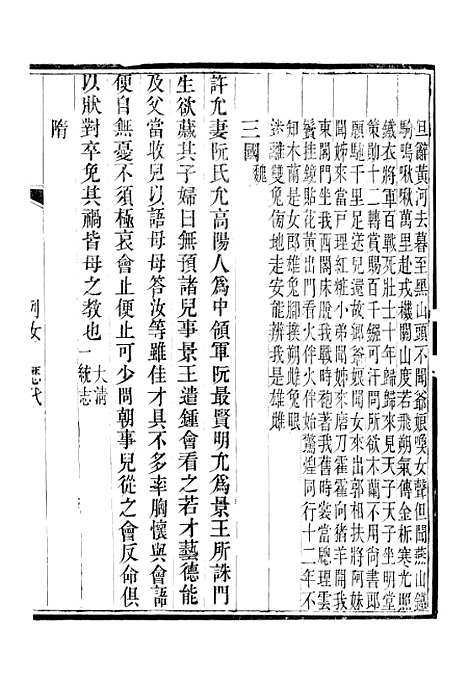 旦辭黃河去暮至黑山頭不聞爺娘喚女聲但聞燕山鐵
騎鳴啾啾萬里赴戎機關山度若飛朔氣傳金柝寒光照
鐵衣將軍百戰死壯士十年歸歸來見天子天子坐明堂
策勛十二轉賞賜百千鏹可汗問所欲木蘭不用尚書郎
願馳千里足送兒還故鄉爺娘聞女來出郭相扶將阿妹
聞姊來當戸理紅粧小弟聞姊來磨刀霍霍向猪羊開我
東閣門坐我西閣牀脫我戰時袍著我舊時裳當牕理雲
鬢挂鏡貼花黃出門看火伴火伴始驚煌同行十二年不
知木蘭是女郎雄兔脚撲朔雌兔眼
迷離雙兔傍地走安能辨我是雄雌
三國魏
許允妻阮氏允高陽人爲中領軍阮最賢明允爲景王所誅門
生欲藏其子婦曰無預諸兒事景王遣鍾會看之若才藝德能
及父當收兒以語母母答汝等雖佳才具不多率胸懷與會語
便自無憂不須極哀會止便止可少問朝事兒從之會反命俱
以狀對卒免其禍皆母之教也大淸一統志
隋
列女 歷代